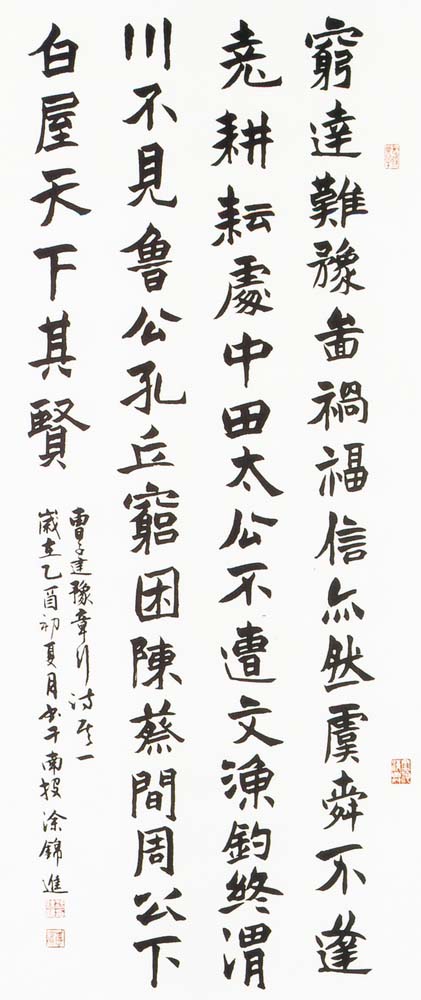 窮達難豫啚禍福信亦然虞舜不逢
堯耕耘處中田太公不遭文漁釣終渭
川不見魯公孔丘窮困陳蔡間周公下
白屋天下其賢
曹子建豫章行詩其一
歲在乙酉初夏月書于南投涂錦進